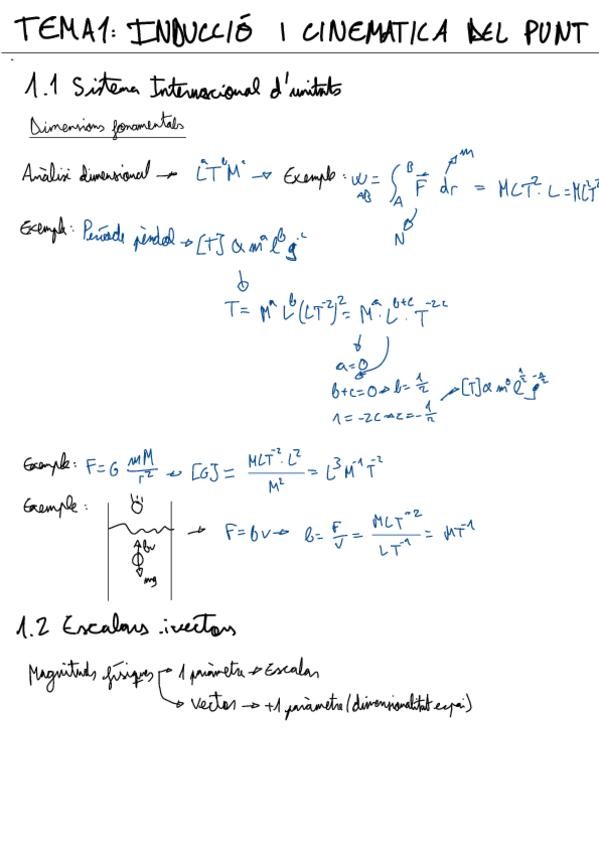 TEMA1: INDUCCIÓ I CINEMATICA DEL PUNT
1.1 Sistema Internacional d'unitats
Dimensions fonamentals
Anàlisi dimensional → LᵃTᵇMᶜ → Exemple: W_AB = ∫_A^B F⃗ dr = MLT⁻²·L = ML²T⁻²
m
N
Exemple: Període pèndol → [T] α mᵃ lᵇ gᶜ
T = Mᵃ Lᵇ (LT⁻²)² = Mᵃ·Lᵇ⁺ᶜ·T⁻²ᶜ
a=0
b+c=0 → b=1/2 → [T] α m⁰ l^1/2 g^-1/2
1=-2c → c=-1/2
Exemple: F=G mM/r² → [G] = MLT⁻²·L²/M² = L³M⁻¹T⁻²
Exemple: → F=bv → b= F/v = MLT⁻²/LT⁻¹ = MT⁻¹
bv
mg
1.2 Escalars i vectors
Magnituds físiques → 1 paràmetre → Escalar
→ Vector → +1 paràmetre (dimensionalitat espai)